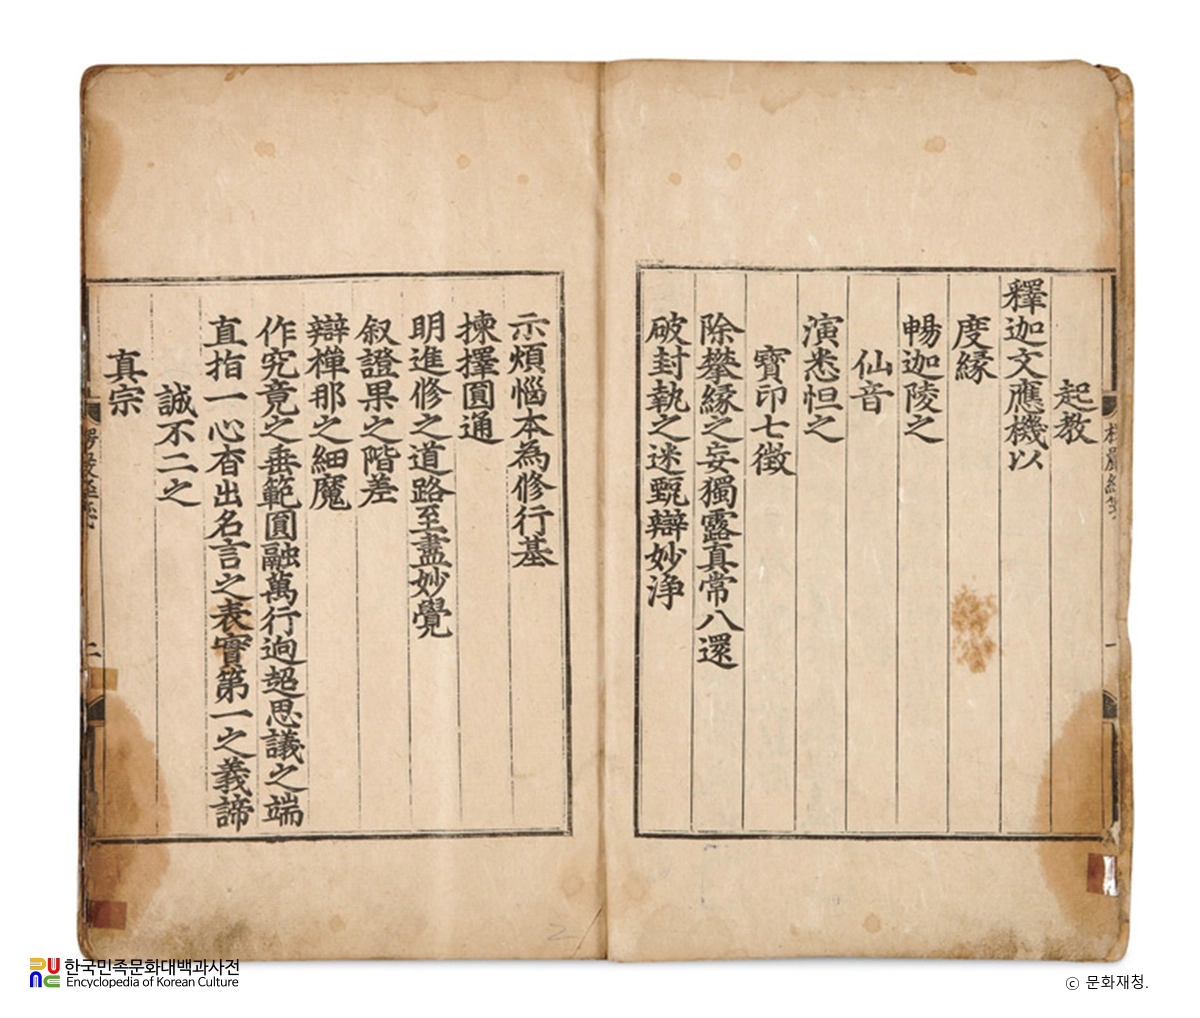 起教
釋迦文應機以
度緣
暢迦陵之
仙音
演悉怛之
寶印七徵
除攀緣之妄獨露真常八還
破封執之迷甄辯妙淨
示煩惱本為修行基
揀擇圓通
明進修之道路至盡妙覺
叙證果之階差
辯禪那之細魔
作究竟之垂範圓融萬行逈超思議之端
直指一心杳出名言之表實第一之義諦
誠不二之
真宗
한국민족문화대백과사전
Encyclopedia of Korean Culture
ⓒ 문화재청.